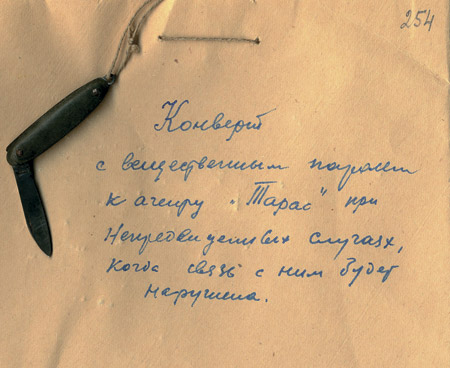 254
Конверт
с вещественным паролем
к агенту „Тарас" при
непредвиденных случаях,
когда связь с ним будет
нарушена.